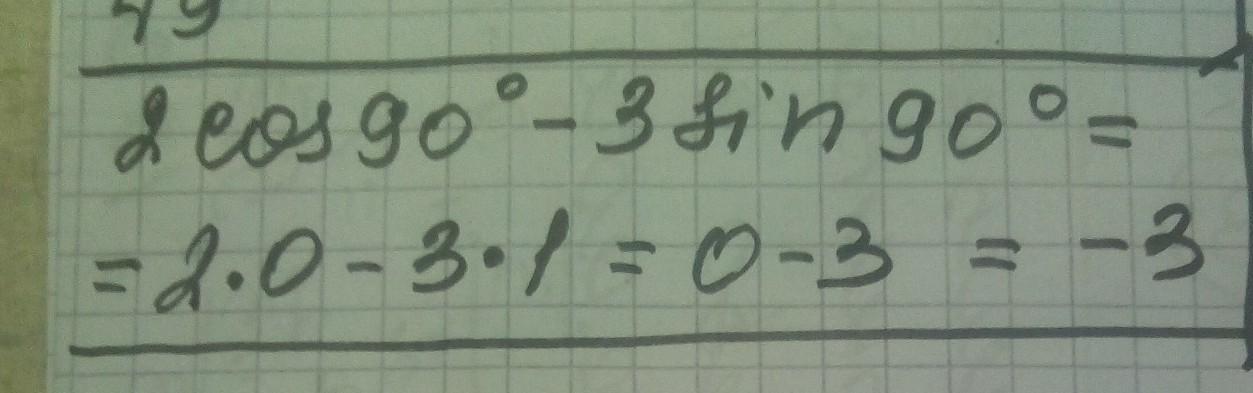 2cos90° - 3sin90° =
= 2·0 - 3·1 = 0 - 3 = -3